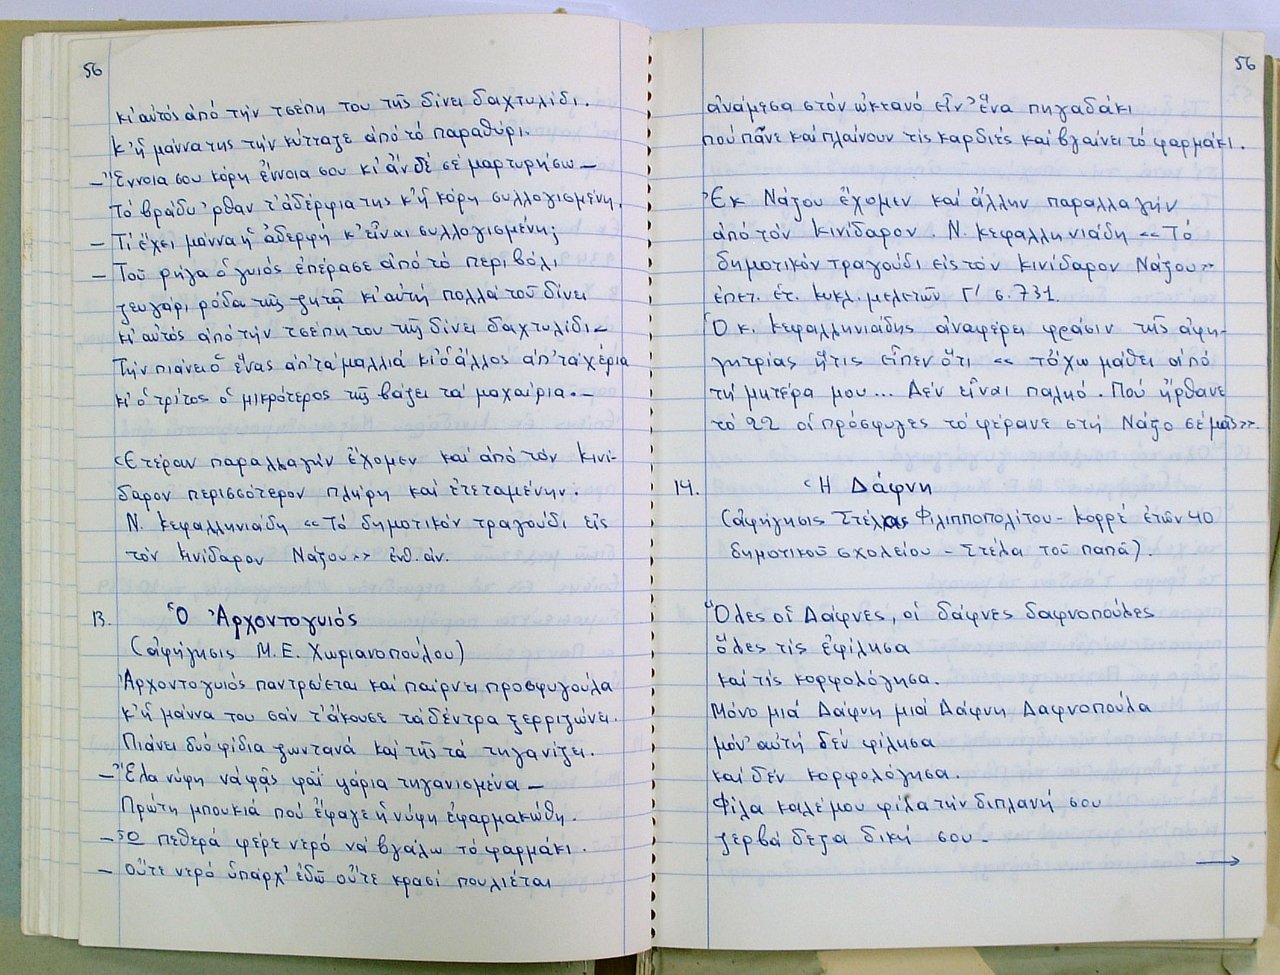 56
κι' αὐτός ἀπό τήν τσέπη του τῆς δίνει δαχτυλίδι.
κ' ἡ μάννα της τήν κύτταζε ἀπό τό παραθύρι.
– Ἔννοια σου κόρη ἔννοια σου κι' ἄν δέ σέ μαρτυρήσω –
Τό βράδυ 'ρθαν τ' ἀδέρφια της κ' ἡ κόρη συλλογισμένη.
– Τί ἔχει μάννα ἡ ἀδερφή κ' εἶναι συλλογισμένη;
– Τοῦ ρήγα ὁ γυιός ἐπέρασε ἀπό τό περιβόλι
ζευγάρι ρόδα τῆς ζητᾶ κι' αὐτή πολλά τοῦ δίνει
κι' αὐτός ἀπό τήν τσέπη του τῆς δίνει δαχτυλίδι –
Τήν πιάνει ὁ ἕνας ἀπ' τά μαλλιά κι' ὁ ἄλλος ἀπ' τά χέρια
κι' ὁ τρίτος ὁ μικρότερος τῆς βάζει τά μαχαίρια. –
Ἑτέραν παραλλαγήν ἔχομεν καί ἀπό τόν Κινί-
δαρον περισσότερον πλήρη καί ἐτεταμένην.
Ν. Κεφαλληνιάδη «Τό δημοτικόν τραγούδι εἰς
τόν Κινίδαρον Νάξου» ἐνθ. ἀν.
13. Ὁ Ἀρχοντογυιός
(ἀφήγησις Μ.Ε. Χωριανοπούλου)
Ἀρχοντογυιός παντρεύεται καί παίρνει προσφυγούλα
κ' ἡ μάννα του σάν τ' ἄκουσε τά δέντρα ξερριζώνει.
Πιάνει δυό φίδια ζωντανά καί τῆς τά τηγανίζει.
– Ἔλα νύφη νά φᾶς φάϊ ψάρια τηγανισμένα –
Πρώτη μπουκιά πού ἔφαγε ἡ νύφη ἐφαρμακώθη.
– Ὤ πεθερά φέρε νερό νά βγάλω τό φαρμάκι.
– οὔτε νερό ὑπάρχ' ἐδῶ οὔτε κρασί πουλιέται
56
ἀνάμεσα στόν ὠκεανό εἶν' ἕνα πηγαδάκι
πού πᾶνε καί πλαίνουν τίς καρδιές καί βγαίνει τό φαρμάκι.
Ἐκ Νάξου ἔχομεν καί ἄλλην παραλλαγήν
ἀπό τόν Κινίδαρον. Ν. Κεφαλληνιάδη «Τό
δημοτικόν τραγούδι εἰς τόν Κινίδαρον Νάξου»
ἐπετ. ἑτ. κυκλ. μελετῶν Γ' σ. 731.
Ὁ κ. Κεφαλληνιάδης ἀναφέρει φράσιν τῆς ἀφη-
γητρίας ἥτις εἶπεν ὅτι « τόχω μάθει ἀπό
τή μητέρα μου... Δέν εἶναι παληό. Πού ἤρθανε
τό 22 οἱ πρόσφυγες τό φέρανε στή Νάξο σέ μᾶς».
14. Ἡ Δάφνη
(ἀφήγησις Στέλας Φιλιπποπολίτου - Κορρέ ἐτῶν 40
δημοτικοῦ σχολείου – Στέλα τοῦ παπᾶ).
Ὅλες οἱ Δάφνες, οἱ δάφνες δαφνοπούλες
ὅλες τίς ἐφίλησα
καί τίς κορφολόγησα.
Μόνο μιά Δάφνη μιά Δάφνη Δαφνοπούλα
μόν' αὐτή δέν φίλησα
καί δέν κορφολόγησα.
Φίλα καλέ μου φίλα τήν διπλανή σου
ζερβά δεξά δική σου –